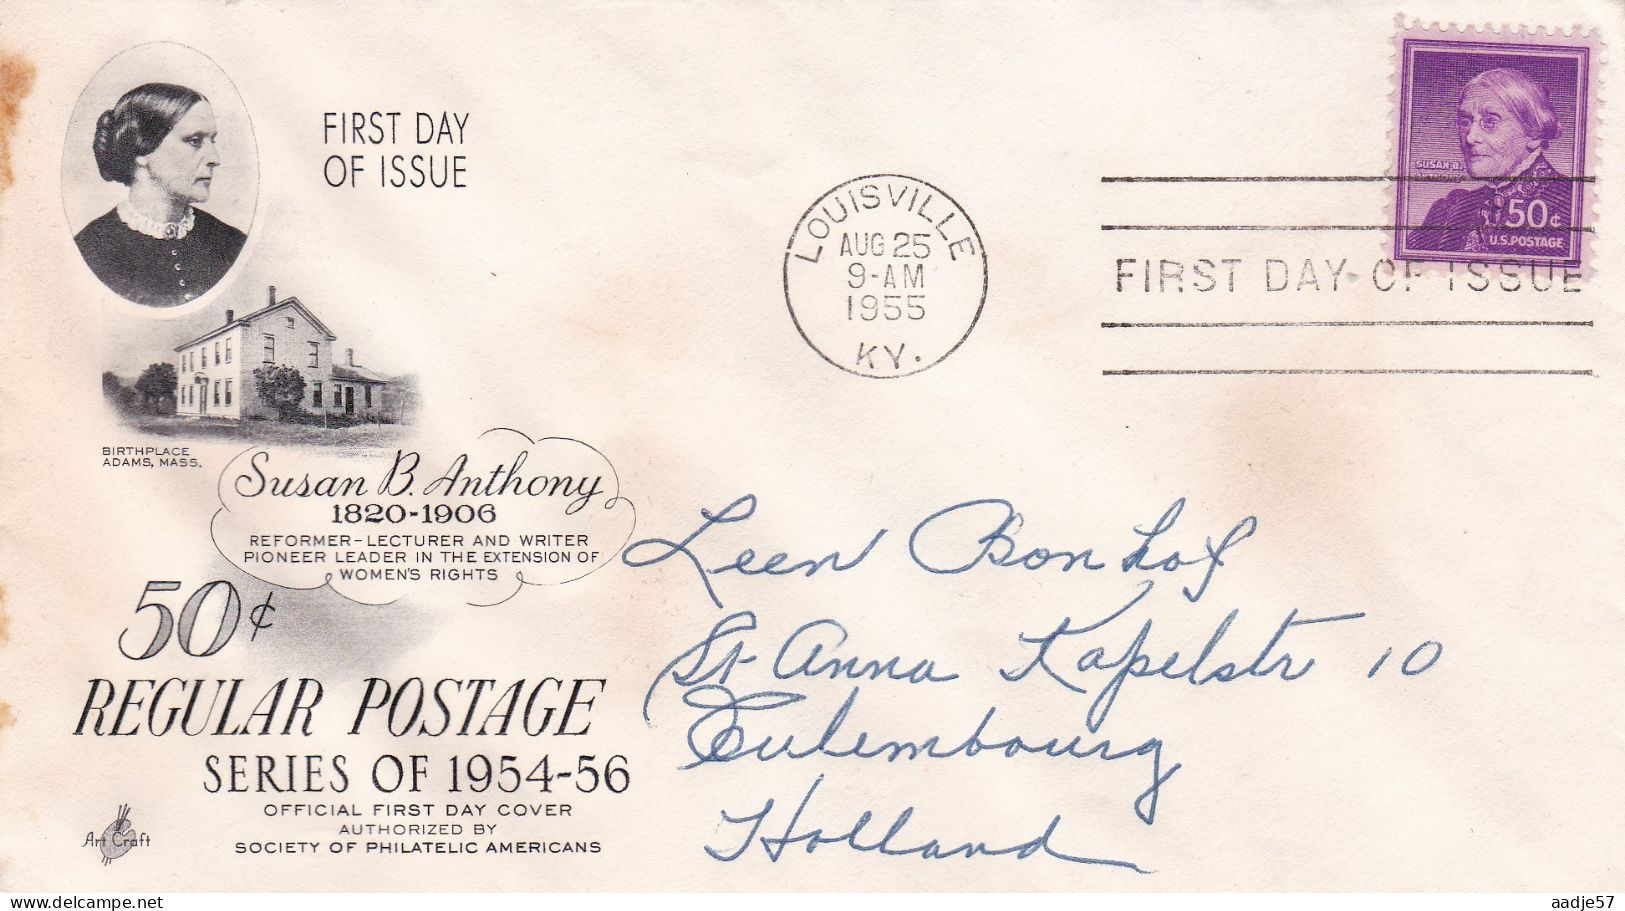 FIRST DAY
OF ISSUE
BIRTHPLACE
ADAMS, MASS.
Susan B. Anthony
1820-1906
REFORMER-LECTURER AND WRITER
PIONEER LEADER IN THE EXTENSION OF
WOMEN'S RIGHTS
50¢
REGULAR POSTAGE
SERIES OF 1954-56
OFFICIAL FIRST DAY COVER
AUTHORIZED BY
SOCIETY OF PHILATELIC AMERICANS
Art Craft
LOUISVILLE
AUG 25
9-AM
1955
KY.
SUSAN B.
ANTHONY
50¢
U.S. POSTAGE
FIRST DAY OF ISSUE
Leen Bonhof
St. Anna Kapelstr 10
Culembourg
Holland
www.delcampe.net
aadje57